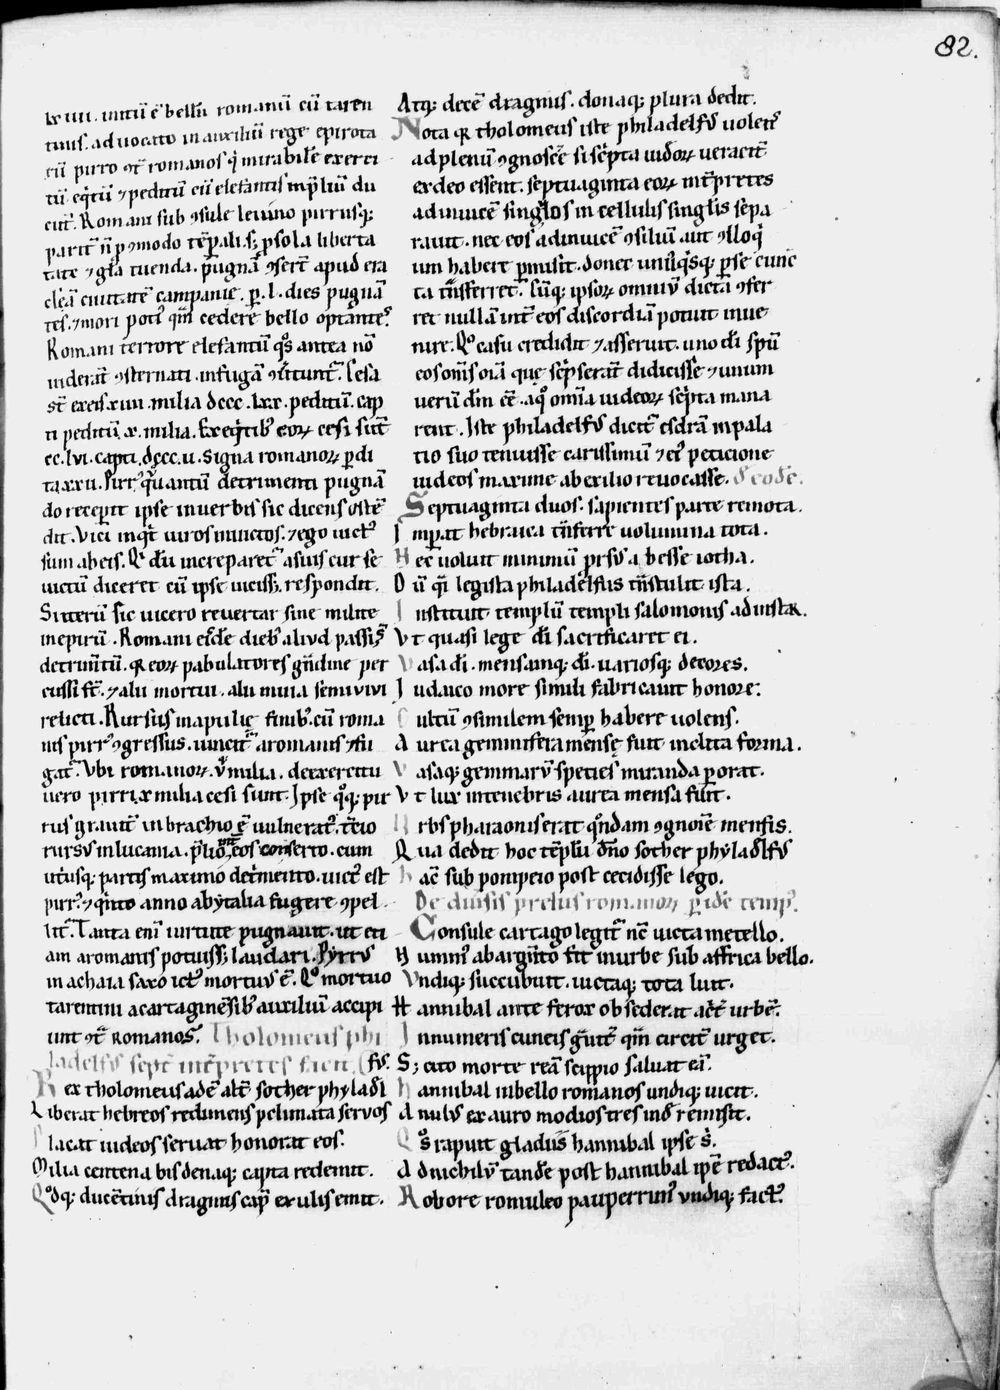 82.
lxiiii. initiū ē bellū romanū cū taren
tinis. advocato in auxiliū rege epirota
rū pirro ꝯt̄ romanos qͥ mirabilē exerci
tū eqͥtū ⁊ peditū cū elefantis inp̄liū du
cit̄. Romani sub ꝯsule levino pirrusq;
parit̄ n̄ ꝓ ꝯmodo tēꝑali. s; ꝓ sola liberta
tate ⁊ gl̄a tuenda. pugnā ꝯsert̄ apud era
cleā civitatē campanie. ꝑ .l. dies pugnā
tes. ⁊ mori potiꝰ qm̄ cedere bello optanteˢ.
Romani terrore elefantū qͦs antea nō
viderāt ꝯsternati. in fugā ꝯv̄tuntͬ. Cesa
st̄ ex eis xiiii. milia dccc. lxx. peditū. cap
ti peditū .x. milia. Ex eqͥtibꝰ eoꝝ cesi sūt
cc. lvi. capti. dccc.ii. Signa romanoꝝ ꝑdi
ta xxii. Pirrꝰ qͣntū detrimenti pugnā
do recepit ipse in verbis sic dicens ostē
dit. Vici inqͥt viros invictos. ⁊ ego victꝰ
sum ab eis. Qͥ dū increparetͬ a suis cur se
victū diceret cū ipse viciss; respondit.
Si iterū sic vicero revertar sine milite
in epirū. Romani eisdē diebꝰ aliud passi sͭ
detrim̄tū. qͬ eoꝝ pabulatores gͣndine per
cussi st̄. ⁊ alii mortui. alii mira semivivi
relicti. Rursus in apulie finibꝰ. cū roma
nis pirrꝰ ꝯgressus. vincitͬ a romanis ⁊ fu
gatͬ. Ubi romanoꝝ. v̄ milia. de exercitu
vero pirri x milia cesi sunt. Ipse qͦq; pir
rus graviť in brachio ē vulneratꝰ. t̄cio
rursus in lucania. p̄liō int̄ eos conserto. cum
ut̄usq; partis maximo det̄mento. victꝰ est
pirrꝰ. ⁊ qͥnto anno ab ytalia fugere ꝯpel
litͬ. Tanta eni virtute pugnavit. ut eti
am a romanis potuiss; laudari. Pyrrꝰ
in achaia saxo ictꝰ mortuꝰ ē. Qͦ mortuo
tarentini a cartaginēsibꝰ auxiliū accipi
unt ꝯt̄ romanos. Tholomeus phi
ladelfus sept̄ int̄pretes facit.
Rex tholomeus adē alt̄ sother phyladl
Liberat hebreos redimens pelimata servos
Placat iudeos servat honorat eos.
Milia centena bis denaq; capta redemit.
Qͦdq; ducētinis dragmis cap̄ exulis emit.
Atq; decē dragmis. donaq; plura dedit.
Nota qͬ tholomeus iste philadelfꝰ volens
ad plenū ꝯgnoscē si scͥpta iudoꝝ veracit̄
ex deo essent. septuaginta eoꝝ int̄pretes
ad invicē singlos in cellulis singlis sepa
ravit. nec eos ad invicē ꝯsiliū aut ꝯlloqͥ
um habere ꝑmisit. donec unusqͥsq; ꝑ se cunc
ta tn̄sferret. Cūq; ipsoꝝ omniū dicta ꝯfer
ret nullā int̄ eos discordiā potuit inve
nire. Qͦ casu credidit ⁊ asseruit. uno dī spū
eos om̄s oīa que scͥpserāt didicisse ⁊ unum
verū dīn eē. a qͦ omīa iudeoꝝ scͥpta mana
rent. Iste philadelfꝰ dicitͬ esdrā in pala
tio suo tenuisse carissimū ⁊ eiꝰ peticione
iudeos maxime ab exilio revocasse. De eodē.
Septuaginta duos. sapientes parte remota.
Imꝑat hebraica tn̄sferre volumina tota.
Hec voluit minimū prsus abesse iotha.
Dū qͥ legista philadelfus tn̄stulit ista.
Instituit templū templi salomonis ad instar.
Ut quasi lege dī sacrificaret ei.
Vasa dī. mensamq; dī. variosq; decores.
Iudaico more simili fabricavit honore:
Cultū ꝯsimilem semꝑ habere volens.
Aurea gemmifera mense fuit inclita forma.
Vasaq; gemmarū species miranda ꝑorat.
Ut lux in tenebris aurea mensa fuit.
Urbs pharaonis erat qͦndam ꝯgnoīe menfis.
Qua dedit hoc tēplū dn̄o sother phyladlfꝰ
hac sub pompeio post cecidisse lego.
De diversis preliis romanoꝝ ꝑ idē tempꝰ.
Consule cartago legitͬ nc̄ victa metello.
Hūmꝰ ab argēto fit in urbe sub affrica bello.
Undiq; succubuit. victaq; tota luit.
Hannibal ante ferox obsederat act̄ urbē.
Innumeris cuneis gͣvit̄ qm̄ circit̄ urget.
S; cito morte reā scippio salvat eā.
hannibal in bello romanos undiq; vicit.
Anulꝰ ex auro modios tres inde remisit.
Qͦs rapuit gladius hannibal ipse sͥ.
Ad nichilū tandē post hannibal ipē redactꝰ.
Robore romuleo pauperrimꝰ undiq; factꝰ.